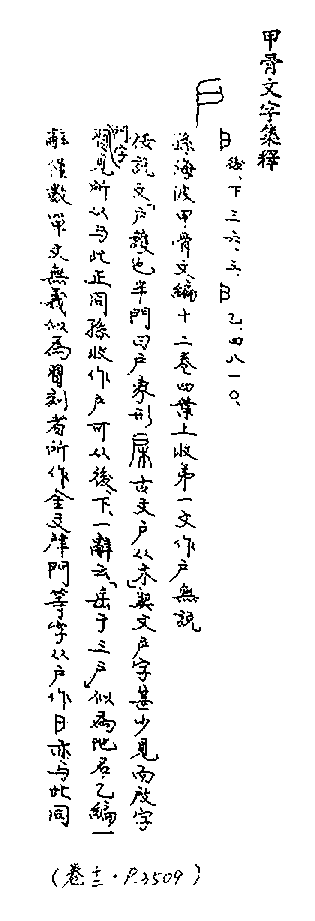 甲骨文字集釋
後、下三六、三、 乙、四八一〇、
孫海波甲骨文編十二卷四葉上收第一文作戶無說
按說文「戶護也半門曰戶象形 古文戶从木」契文戶字甚少見而啟字
門字習見所以与此正同孫收作戶可从後、下、一辭云「岳于三戶」似為地名乙編一
辭僅數單文無義似為習刻者所作金文肁門等字从戶作日亦与此同
(卷十二·P.3509)